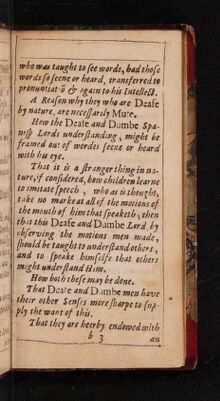 who was taught to see words, had those
words so seene or heard, transferred to
pronuntiatiō & again to his Intellect.
A Reason why they who are Deafe
by nature, are necessarly Mute.
How the Deafe and Dumbe Spa-
nish Lords understanding, might be
framed out of wordes seene or heard
with his eye.
That it is a stranger thing in na-
ture, if considered, how children learne
to imitate speech, who as is thought,
take no marke at all of the motions of
the mouth of him that speaketh, then
that this Deafe and Dumbe Lord, by
observing the motions men made,
should be taught to understand others,
and to speake himselfe that others
might understand Him.
How both these may be done.
That Deafe and Dumbe men have
their other Senses more sharpe to sup-
ply the want of this.
That they are heerby endowed with
b 3
an